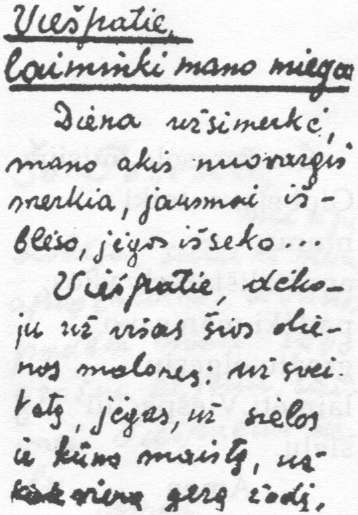 Viešpatie,
laimink mano miegą
Diena užsimerkė,
mano akis nuovargis
merkia, jausmai iš-
blėso, jėgos išseko...
Viešpatie, dėko-
ju už visas šios die-
nos malones: už svei-
katą, jėgas, už sielos
ir kūno maistą, už
kiekvieną gerą žodį,